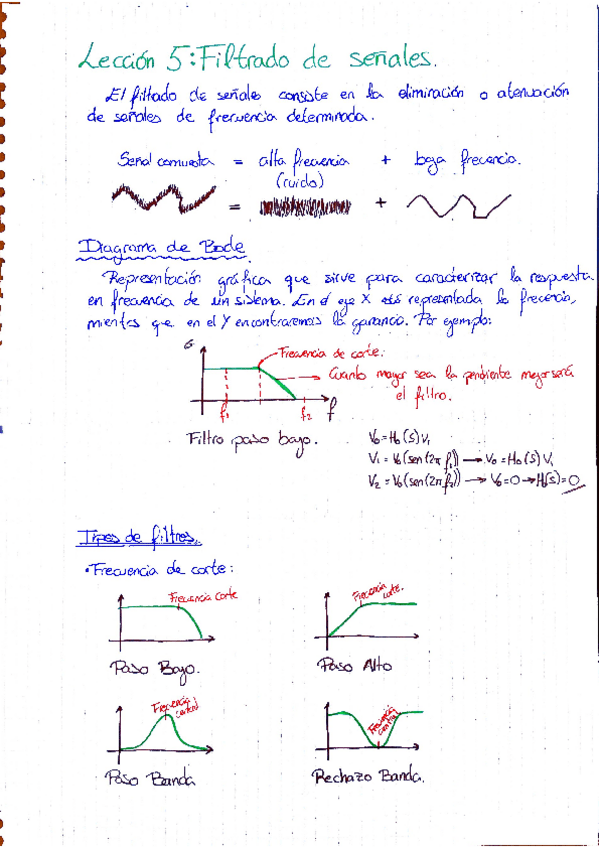 Lección 5: Filtrado de señales.
El filtrado de señales consiste en la eliminación o atenuación
de señales de frecuencia determinada.
Señal compuesta = alta frecuencia + baja frecuencia.
(ruido)
= +
Diagrama de Bode.
Representación gráfica que sirve para caracterizar la respuesta
en frecuencia de un sistema. En el eje X está representada la frecuencia,
mientras que en el Y encontraremos la ganancia. Por ejemplo:
G
Frecuencia de corte.
Cuanto mayor sea la pendiente mejor será
el filtro.
f₁ f₂ f
Filtro paso bajo.
V₀ = H₀(S) V₁
V₁ = V₀(sen(2π f₁)) → V₀ = H₀(S) V₁
V₂ = V₀(sen(2π f₂)) → V₀ = 0 → H(s) = 0
Tipos de filtros.
• Frecuencia de corte:
Frecuencia corte
Frecuencia corte.
Paso Bajo.
Paso Alto
Frecuencia central
Frecuencia central
Paso Banda
Rechazo Banda.